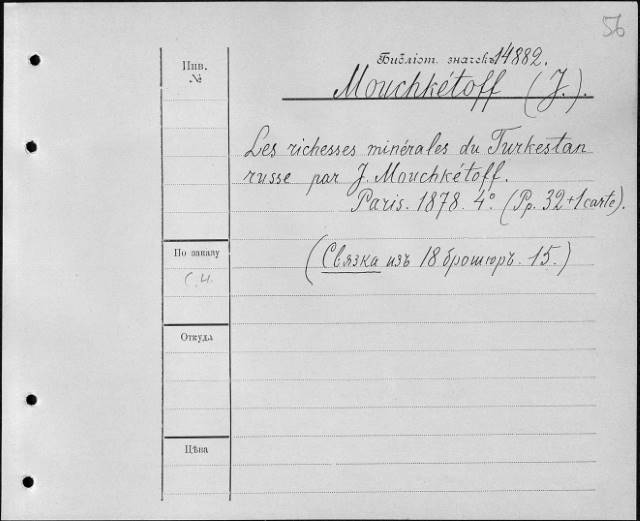 56
Библіот. значекъ 14882.
Инв.
№
Mouchkétoff (J.).
Les richesses minérales du Turkestan
russe par J. Mouchkétoff.
Paris. 1878. 4º. (Pp. 32+1 carte).
По заказу
(Связка изъ 18 брошюръ. 15.)
Откуда
Цѣна